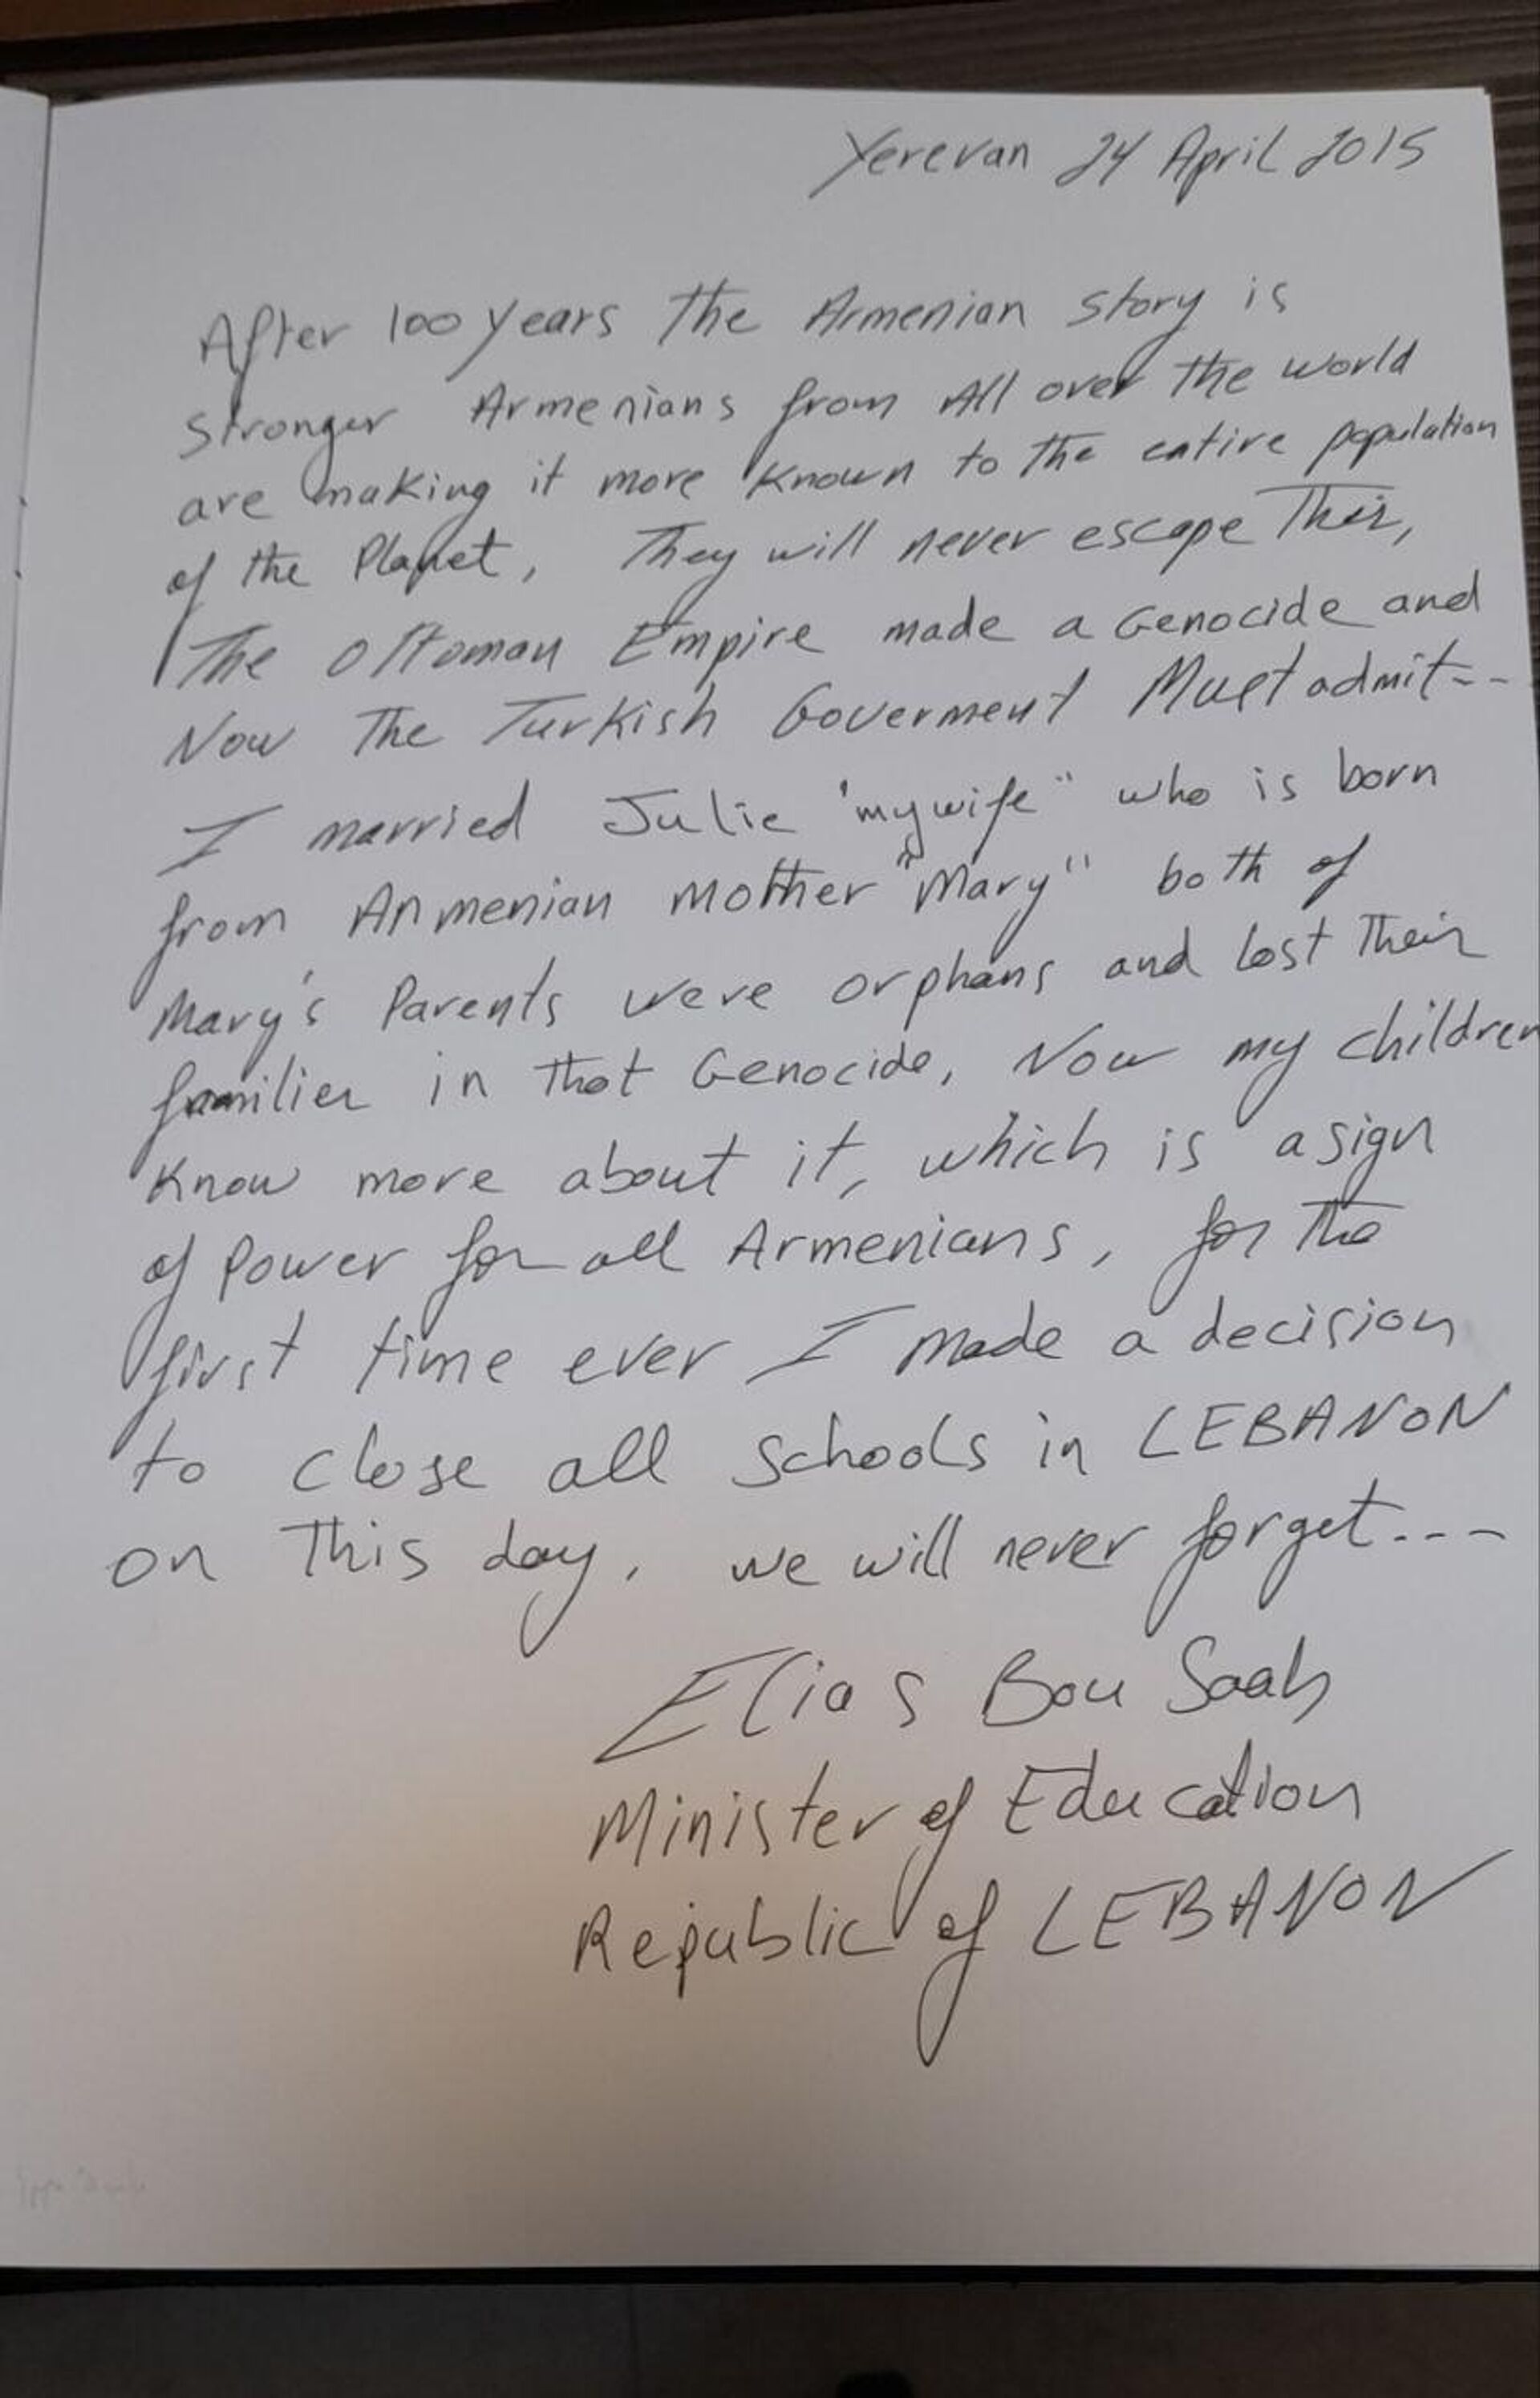 Yerevan 24 April 2015
After 100 years The Armenian Story is
stronger Armenians from All over The world
are making it more known to The entire population
of the Planet, They will never escape This,
The Ottoman Empire made a Genocide and
Now The Turkish Goverment Must admit--
I married Julie "my wife" who is born
from Armenian Mother "Mary" both of
Mary's Parents were orphans and lost Their
families in That Genocide, Now my children
Know more about it, which is a sign
of Power for all Armenians, for The
first time ever I made a decision
to close all Schools in LEBANON
on This day, we will never forget...
Elias Bou Saab
Minister of Education
Republic of LEBANON